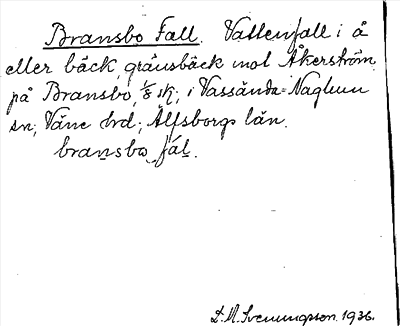 Bransbo Fall. Vattenfall i å
eller bäck, gränsbäck mot Åkerström
på Bransbo, 1/8 sk; i Vassända-Naglum
sn; Väne hrd; Älfsborgs län.
bransbo fál.
D.M. Svenungsson. 1936.